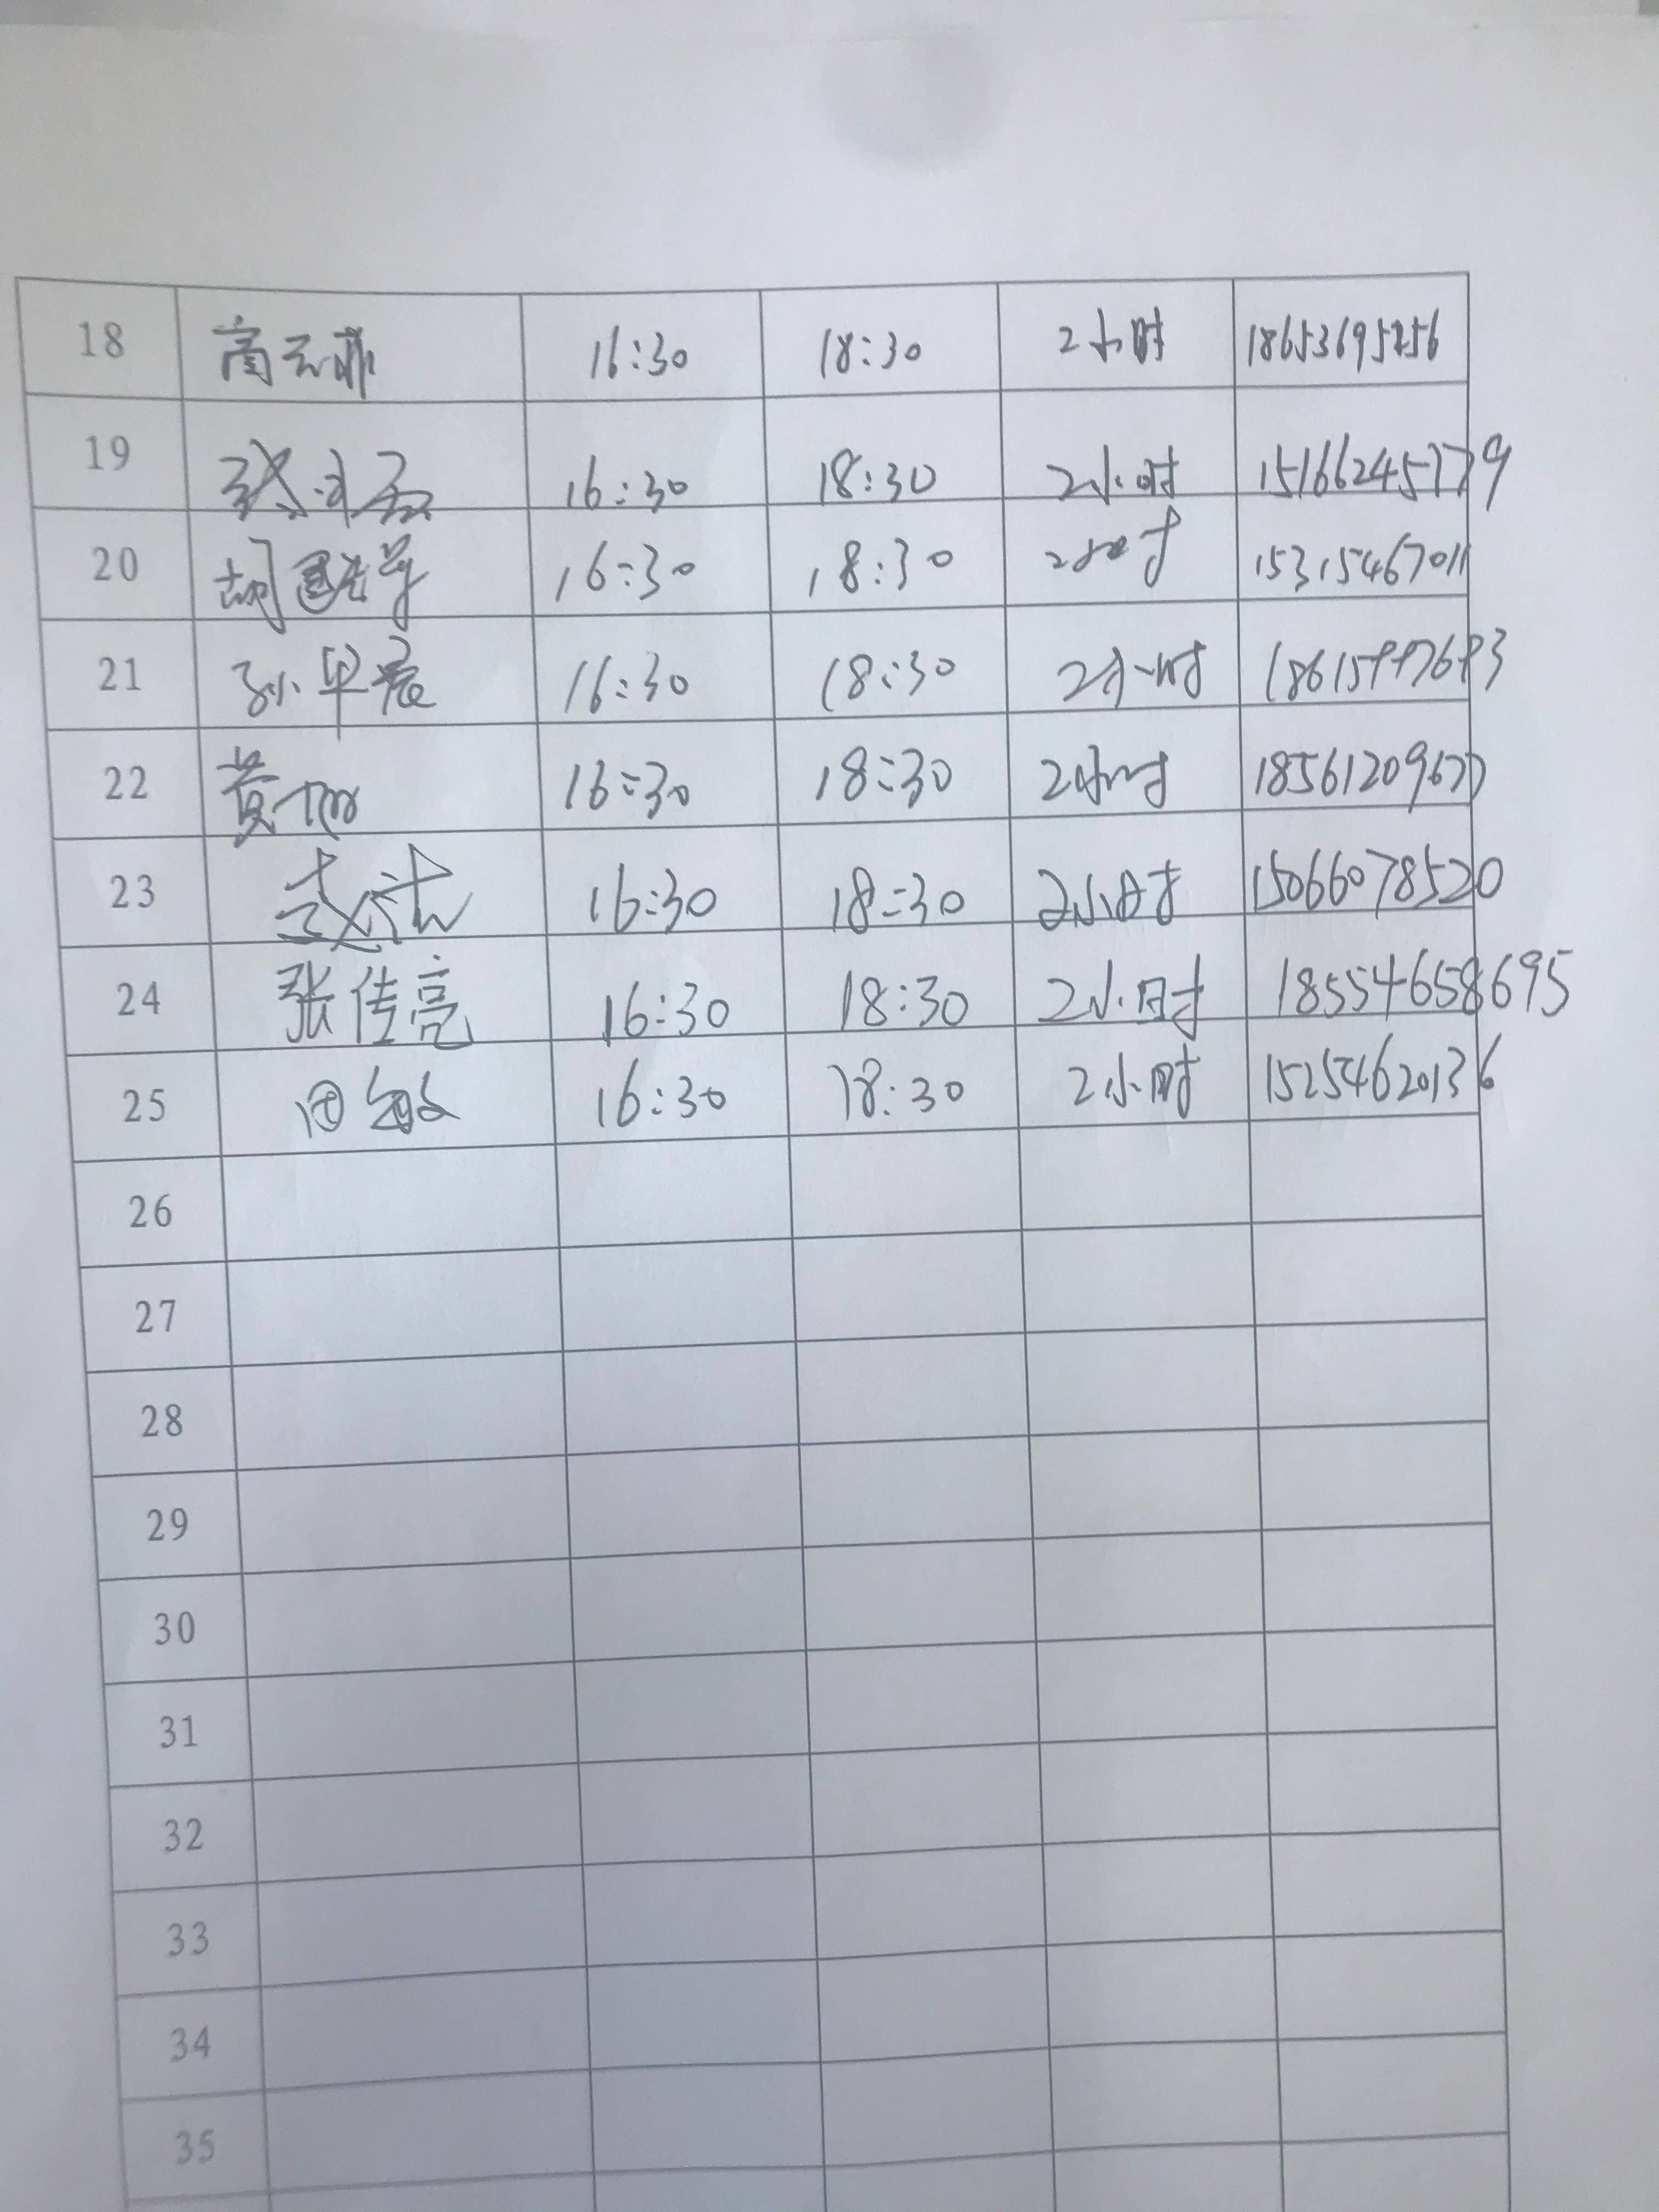 18 16:30 18:30 2小时
19 16:30 18:30 2小时 15166245779
20 胡 16:30 18:30 2小时 15315467011
21 孙早晨 16:30 18:30 2小时
22 黄 16:30 18:30 2小时
23 16:30 18:30 2小时 15066078520
24 张佳亮 16:30 18:30 2小时 18554658695
25 16:30 18:30 2小时 15254620136
26
27
28
29
30
31
32
33
34
35